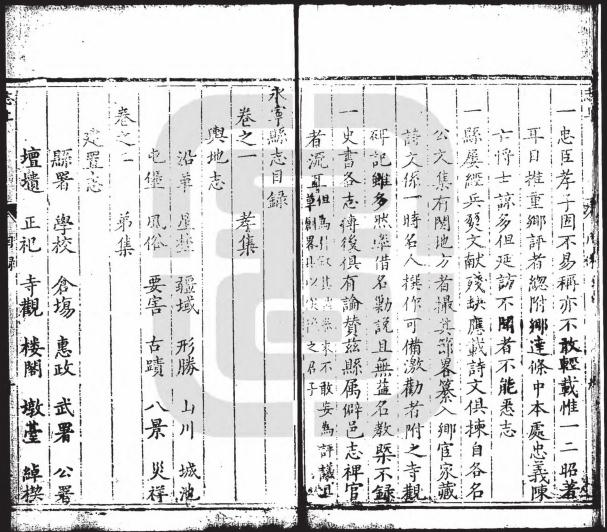 一忠臣孝子固不易稱亦不敢輕載惟一二昭著
耳目推重鄉評者總附鄉達條中本處忠義陳
亡將士諒多但延訪不聞者不能悉志
一縣屢經兵燹文献殘缺應載詩文俱揀自各名
公文集有関地方者撮其節畧纂入鄉宦家藏
詩文係一時名人撰作可備激勸者附之寺觀
碑記雖多然率借名勦說且無益名教槩不錄
一史書各志傳後俱有論賛茲縣属僻邑志稗官
者流
不敢妄為評議
之君子
永寧縣志目錄
卷之一 孝集
輿地志
沿革 星埜 疆域 形勝 山川 城池
屯堡 風俗 要害 古蹟 八景 災祥
卷之二 弟集
建置志
縣署 學校 倉塲 惠政 武署 公署
壇壝 正祀 寺觀 楼閣 墩臺 綽楔